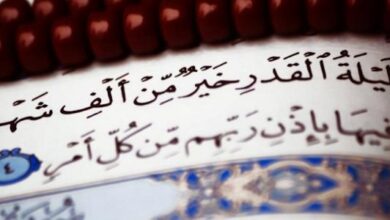 يْلَةُ ٱلْقَدْرِ خَيْرٌ مِّنْ أَلْفِ شَهْ
فِيهَا بِإِذْنِ رَبِّهِم مِّن كُلِّ أَمْرٍ
٤